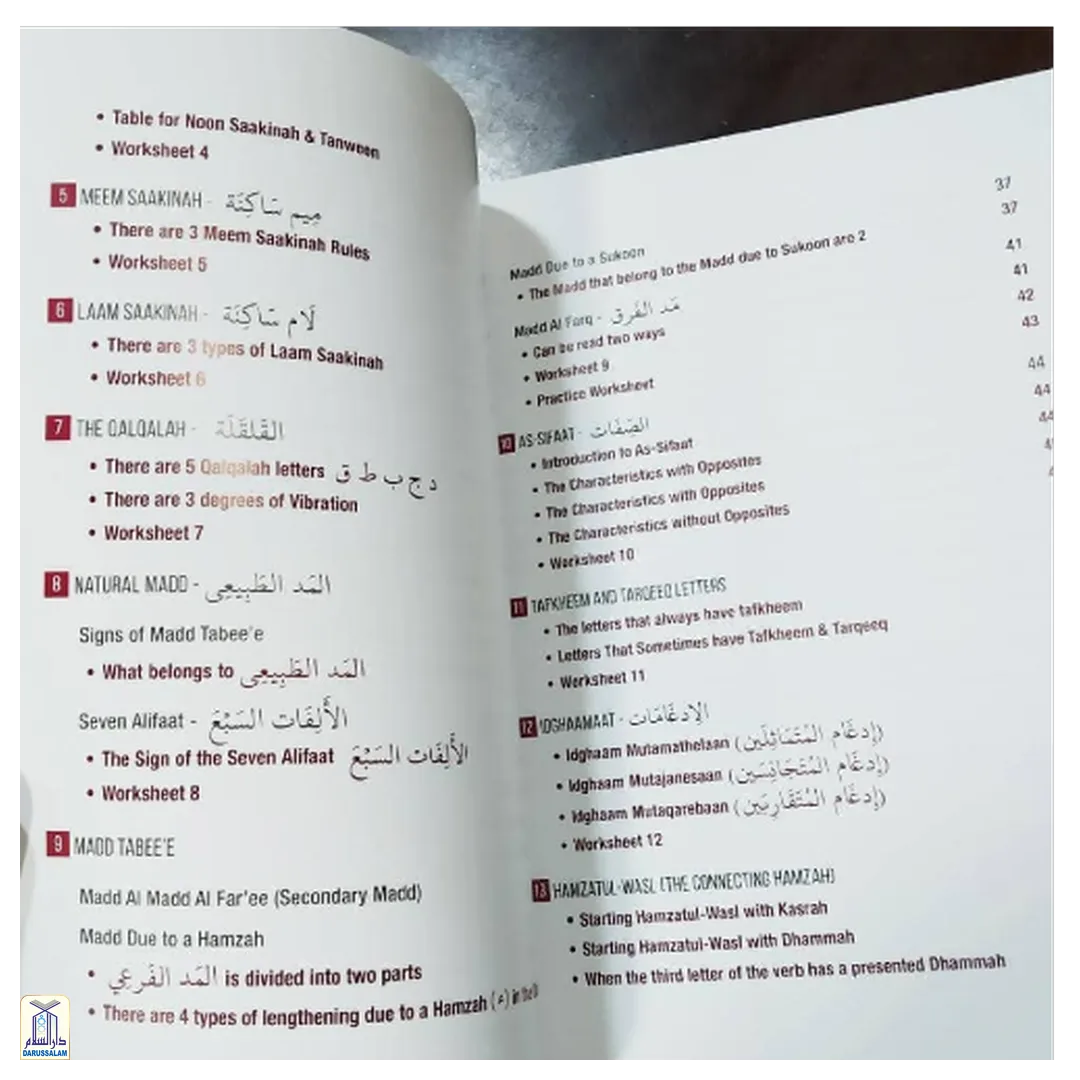 • Table for Noon Saakinah & Tanween
• Worksheet 4
5 MEEM SAAKINAH - مِيم سَاكِنَة
• There are 3 Meem Saakinah Rules
• Worksheet 5
6 LAAM SAAKINAH - لَام سَاكِنَة
• There are 3 types of Laam Saakinah
• Worksheet 6
7 THE QALQALAH - القَلقَلَة
• There are 5 Qalqalah letters د ج ب ط ق
• There are 3 degrees of Vibration
• Worksheet 7
8 NATURAL MADD - المَد الطَبِيعِى
Signs of Madd Tabee'e
• What belongs to المَد الطَبِيعِى
Seven Alifaat - الأَلِفَات السَبْعَ
• The Sign of the Seven Alifaat الأَلِفَات السَبْعَ
• Worksheet 8
9 MADD TABEE'E
Madd Al Madd Al Far'ee (Secondary Madd)
Madd Due to a Hamzah
• المَد الفَرعِي is divided into two parts
• There are 4 types of lengthening due to a Hamzah (ء) in the
37
37
41
41
42
43
44
44
Madd Due to a Sukoon
• The Madd that belong to the Madd due to Sukoon are 2
Madd Al Farq - مَد الفَرق
• Can be read two ways
• Worksheet 9
• Practice Worksheet
10 AS-SIFAAT - الصِفَات
• Introduction to As-Sifaat
• The Characteristics with Opposites
• The Characteristics with Opposites
• The Characteristics without Opposites
• Worksheet 10
11 TAFKHEEM AND TARQEEQ LETTERS
• The letters that always have tafkheem
• Letters That Sometimes have Tafkheem & Tarqeeq
• Worksheet 11
12 IDGHAAMAAT - الإدغَامَات
• Idghaam Mutamathelaan (إدغَام المُتَمَاثِلَين)
• Idghaam Mutajanesaan (إدغَام المُتَجَانِسَين)
• Idghaam Mutaqarebaan (إدغَام المُتَقَارِبَين)
• Worksheet 12
13 HAMZATUL-WASL (THE CONNECTING HAMZAH)
• Starting Hamzatul-Wasl with Kasrah
• Starting Hamzatul-Wasl with Dhammah
• When the third letter of the verb has a presented Dhammah
دارالسلام
DARUSSALAM